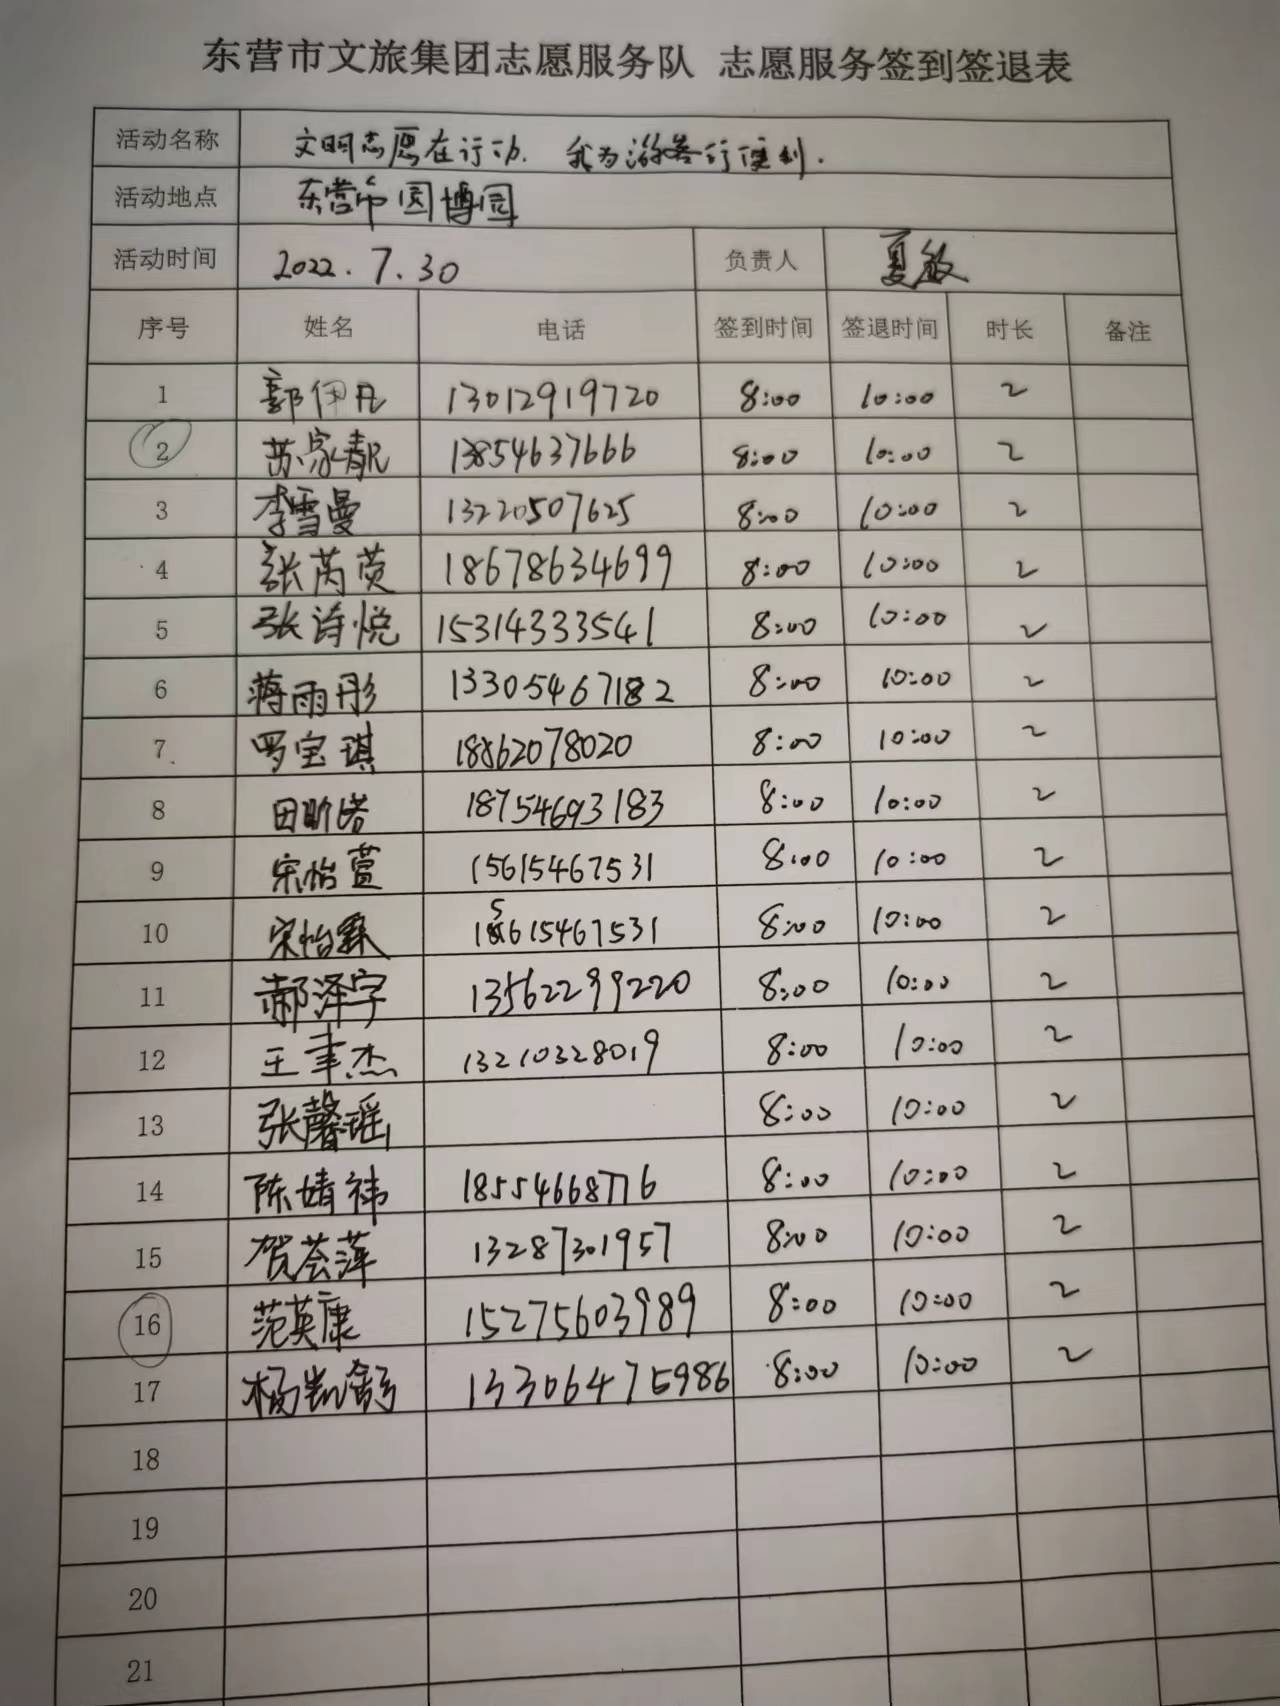 东营市文旅集团志愿服务队 志愿服务签到签退表
活动名称 文明志愿在行动. 我为游客行便利.
活动地点 东营市园博园
活动时间 2022.7.30 负责人 夏敏
序号 姓名 电话 签到时间 签退时间 时长 备注
1 郭伊凡 13012919720 8:00 10:00 2
2 苏家靓 13854637666 8:00 10:00 2
3 李雪曼 13220507625 8:00 10:00 2
4 张芮荧 18678634699 8:00 10:00 2
5 张诗悦 15314333541 8:00 10:00 2
6 蒋雨彤 13305467182 8:00 10:00 2
7 罗宝琪 18862078020 8:00 10:00 2
8 田昕诺 18754693183 8:00 10:00 2
9 宋怡萱 15615467531 8:00 10:00 2
10 宋怡霖 15615467531 8:00 10:00 2
11 郝泽宇 13562299220 8:00 10:00 2
12 王聿杰 13210328019 8:00 10:00 2
13 张馨瑶 8:00 10:00 2
14 陈婧祎 18554668776 8:00 10:00 2
15 贺荟萍 13287301957 8:00 10:00 2
16 范英康 15275603989 8:00 10:00 2
17 杨凯舒 13306475986 8:00 10:00 2
18
19
20
21